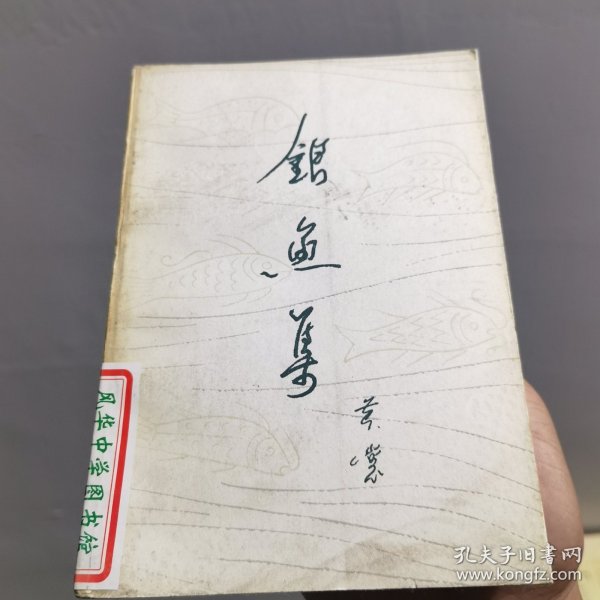 銀魚集
黄裳
风华中学图书馆
孔夫子旧书网
www.kongfz.com